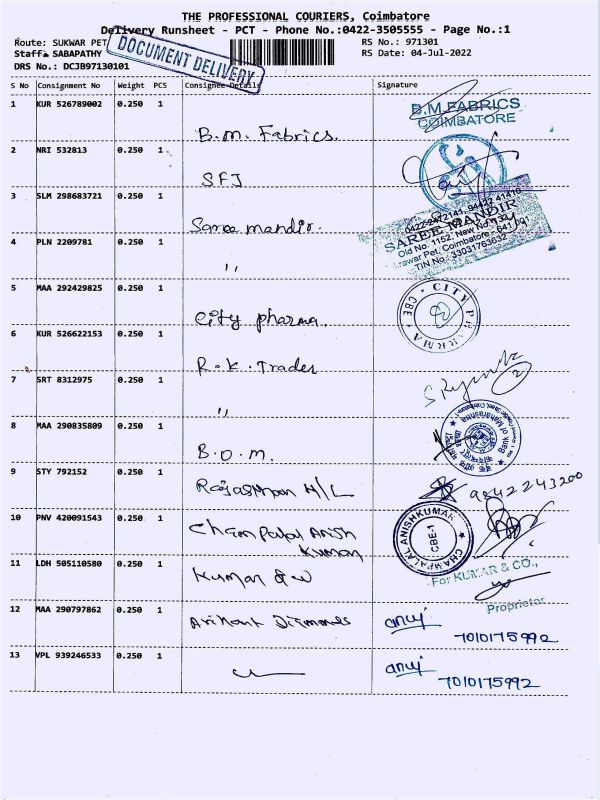 THE PROFESSIONAL COURIERS, Coimbatore
Delivery Runsheet - PCT - Phone No.:0422-3505555 - Page No.:1
Route: SUKWAR PET
RS No.: 971301
Staff: SABAPATHY
RS Date: 04-Jul-2022
DRS No.: DCJB97130101
DOCUMENT DELIVERY
S No Consignment No Weight PCS Consignee Details Signature
1 KUR 526789002 0.250 1
B.M. Fabrics.
B.M.FABRICS
COIMBATORE
2 NRI 532813 0.250 1
SFJ
3 SLM 298683721 0.250 1
Saree mandir.
SAREE MANDIR
Old No. 1152, New No.
Coimbatore - 641 001
TIN No. 33031763632
4 PLN 2209781 0.250 1
,,
5 MAA 292429825 0.250 1
City pharma.
CITY PHARMA
CBE
6 KUR 526622153 0.250 1
R.K. Trades
7 SRT 8312975 0.250 1
,,
2
8 MAA 290835809 0.250 1
B.O.M.
Bank of Maharashtra
9 STY 792152 0.250 1
Rajasthan H/L
9842243200
10 PNV 420091543 0.250 1
Champalal Anish
Kumar
CHAMPALAL ANISHKUMAR
CBE-1
11 LDH 505110580 0.250 1
Kumar & co
For KUMAR & CO.,
Proprietor
12 MAA 290797862 0.250 1
Arihant Diamonds
anuj
7010175992
13 VPL 939246533 0.250 1
anuj
7010175992